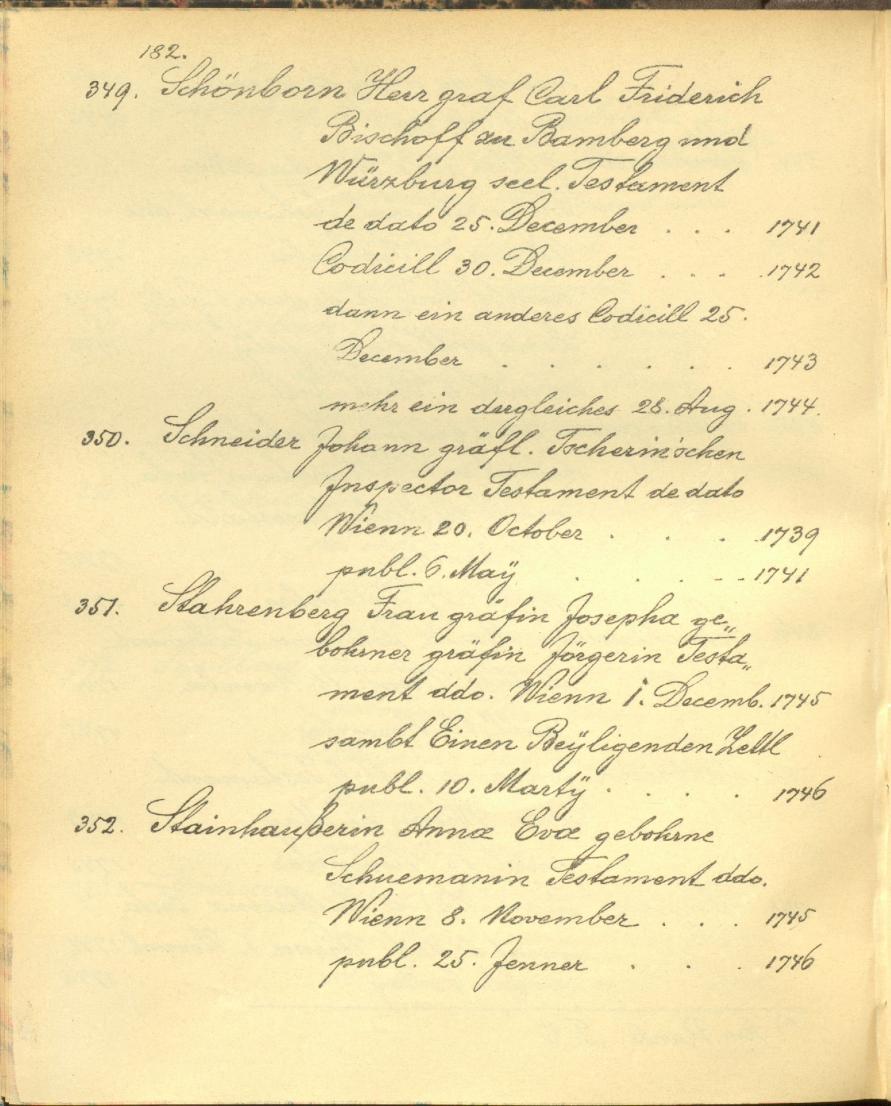 182.
349. Schönborn Herr graf Carl Friderich
Bischoff zu Bamberg und
Würzburg seel. Testament
de dato 25. December . . . 1741
Codicill 30. December . . . 1742
dann ein anderes Codicill 25.
December . . . . . . 1743
mehr ein dergleiches 28. Aug. 1744.
350. Schneider Johann gräfl. Tscherin'schen
Inspector Testament de dato
Wienn 20. October . . . 1739
publ. 6. Maÿ . . . . 1741
351. Stahrenberg Frau gräfin Josepha ge„
bohrner gräfin Jörgerin Testa„
ment ddo. Wienn 1. Decemb. 1745
sambt Einen Beÿligenden Zettl
publ. 10. Martÿ . . . . 1746
352. Stainhaußerin Annæ Evæ gebohrne
Schuemanin Testament ddo.
Wienn 8. November . . . 1745
publ. 25. Jenner . . . 1746